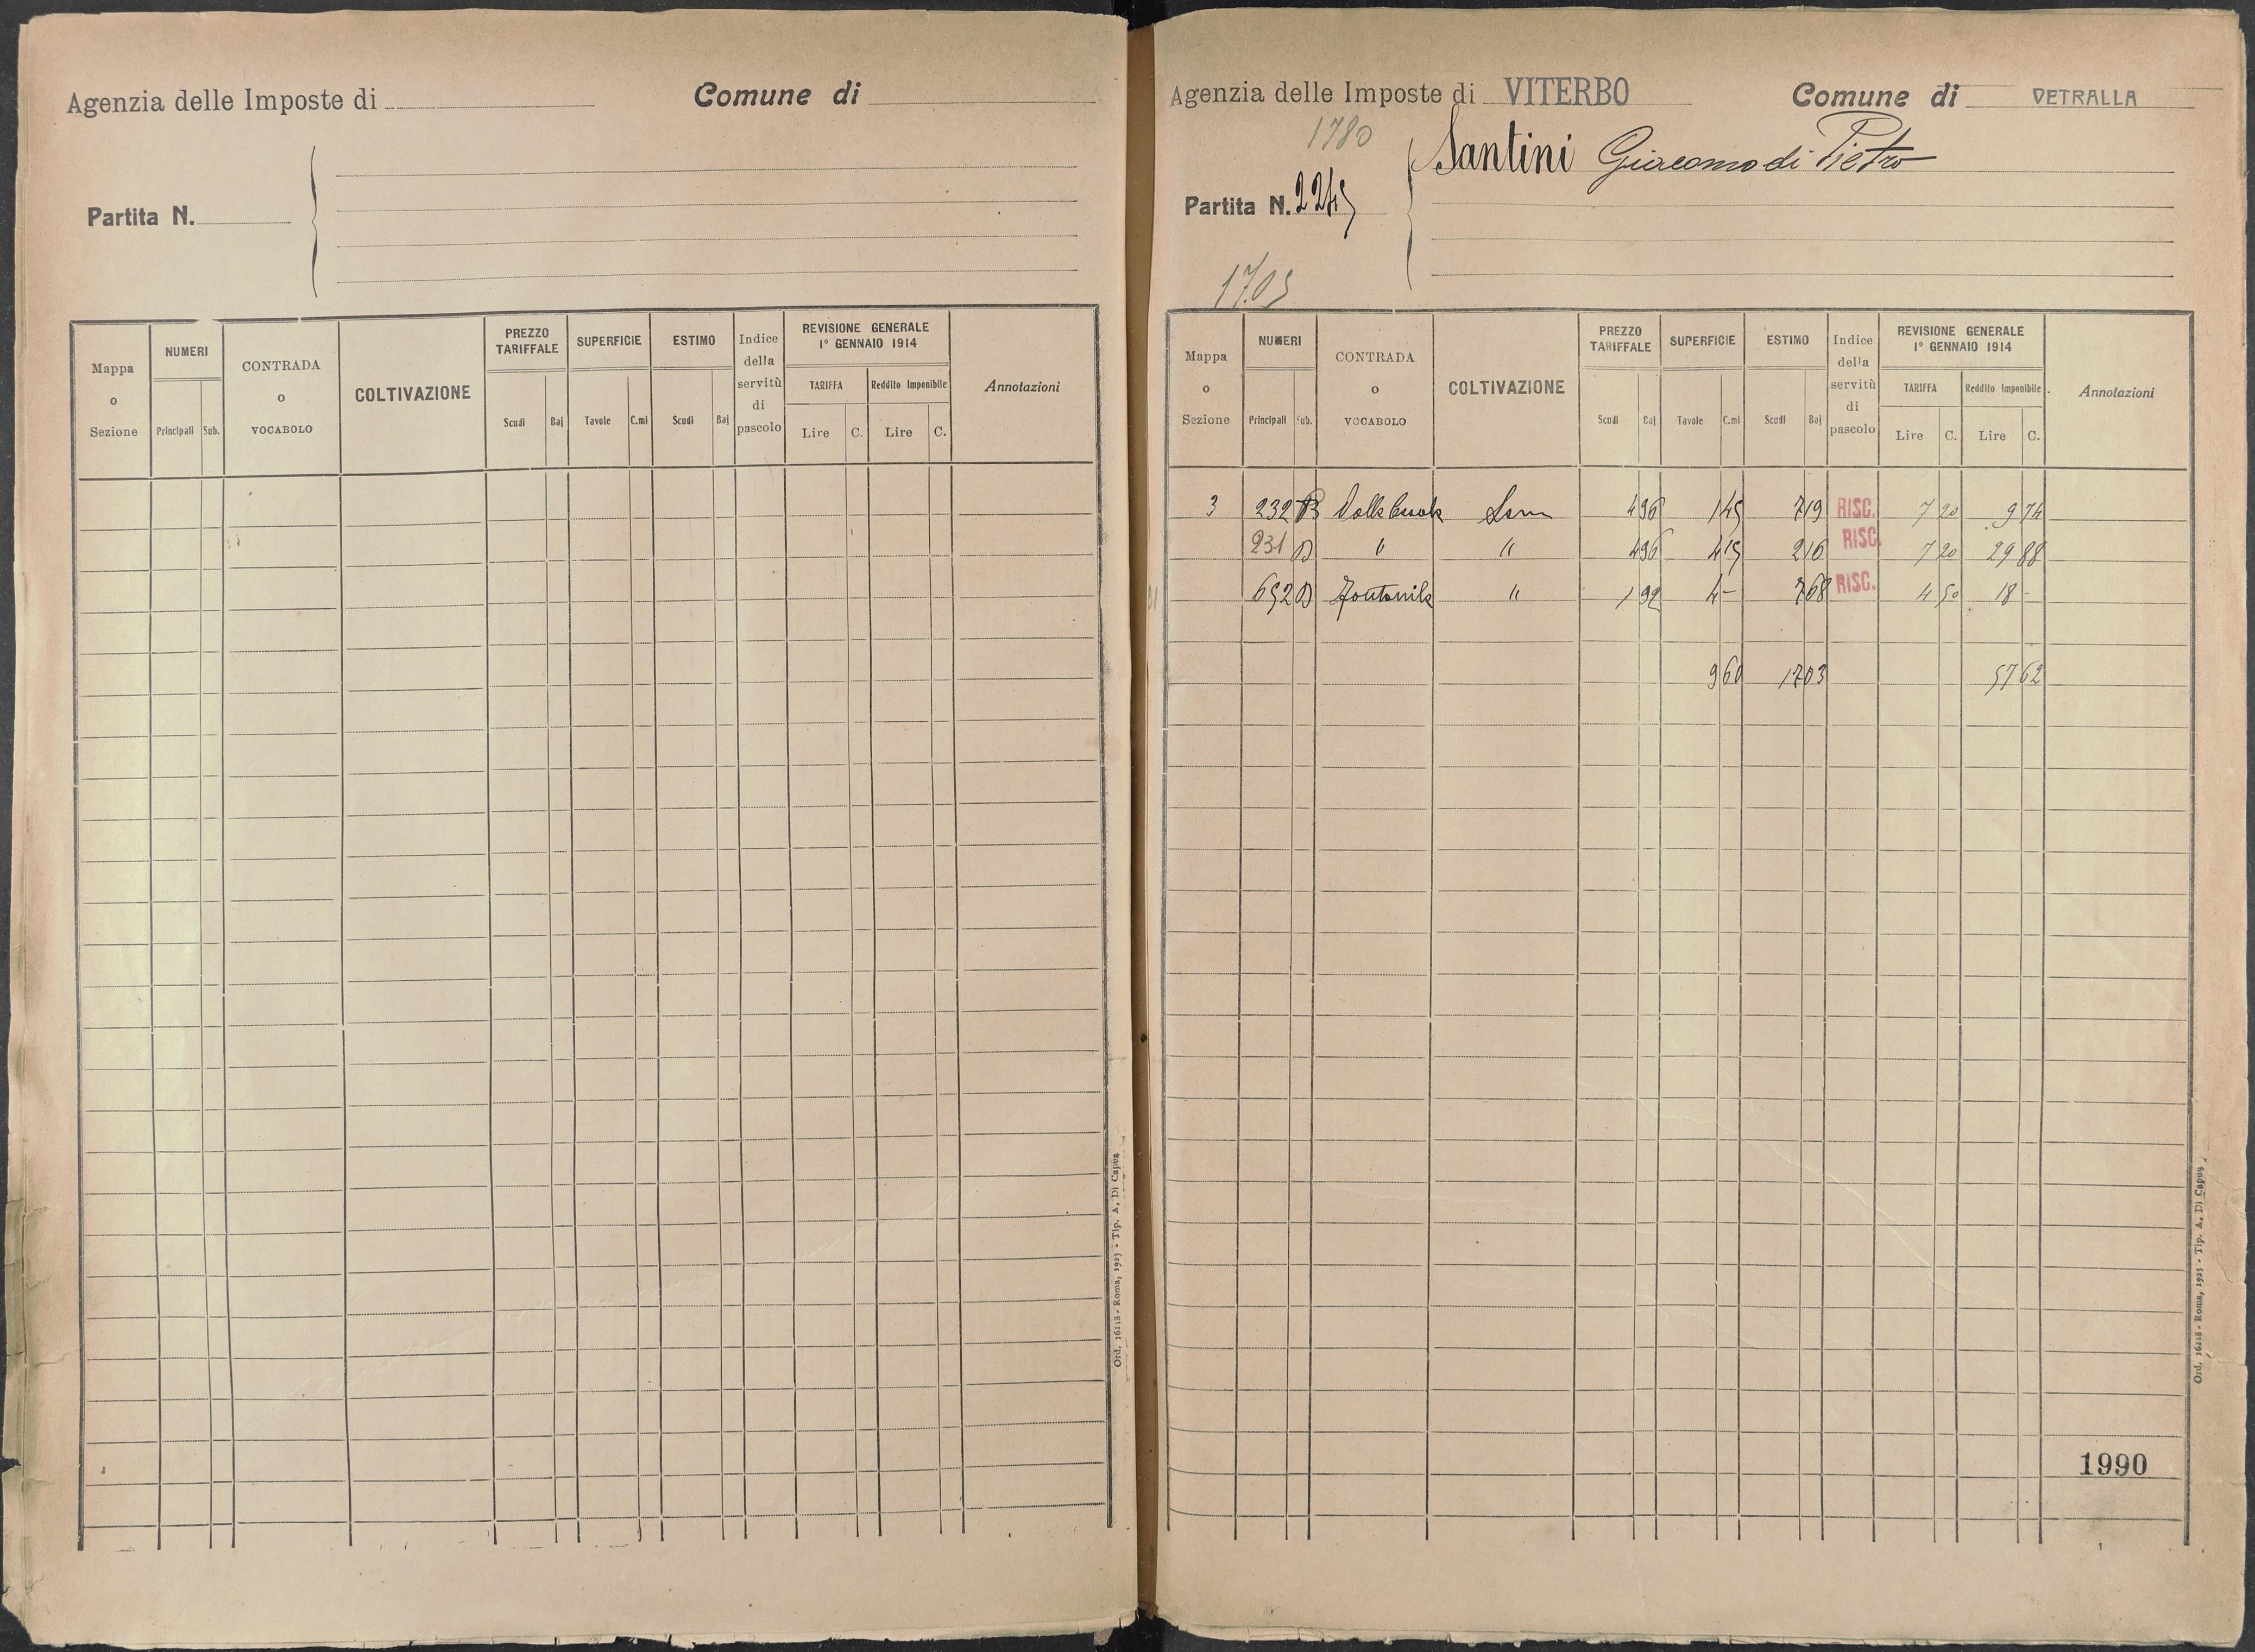 Agenzia delle Imposte di
Comune di
Partita N.
Mappa o Sezione
NUMERI
Principali Sub.
CONTRADA o VOCABOLO
COLTIVAZIONE
PREZZO TARIFFALE
Scudi Baj
SUPERFICIE
Tavole C.mi
ESTIMO
Scudi Baj
Indice della servitù di pascolo
REVISIONE GENERALE
1° GENNAIO 1914
TARIFFA
Lire C.
Reddito Imponibile
Lire C.
Annotazioni
Ord. 16118 - Roma, 1923 - Tip. A. Di Capua
Agenzia delle Imposte di VITERBO
Comune di VETRALLA
1780
Santini Giacomo di Pietro
Partita N. 2245
1705
Mappa o Sezione
NUMERI
Principali Sub.
CONTRADA o VOCABOLO
COLTIVAZIONE
PREZZO TARIFFALE
Scudi Baj
SUPERFICIE
Tavole C.mi
ESTIMO
Scudi Baj
Indice della servitù di pascolo
REVISIONE GENERALE
1° GENNAIO 1914
TARIFFA
Lire C.
Reddito Imponibile
Lire C.
Annotazioni
3 232 4 96 1 45 7 19 RISC. 7 20 9 74
231 " " 4 96 4 15 2 16 RISC. 7 20 29 88
652 " 1 92 4 - 7 68 RISC. 4 50 18 -
9 60 17 03 57 62
1990
Ord. 16118 - Roma, 1923 - Tip. A. Di Capua